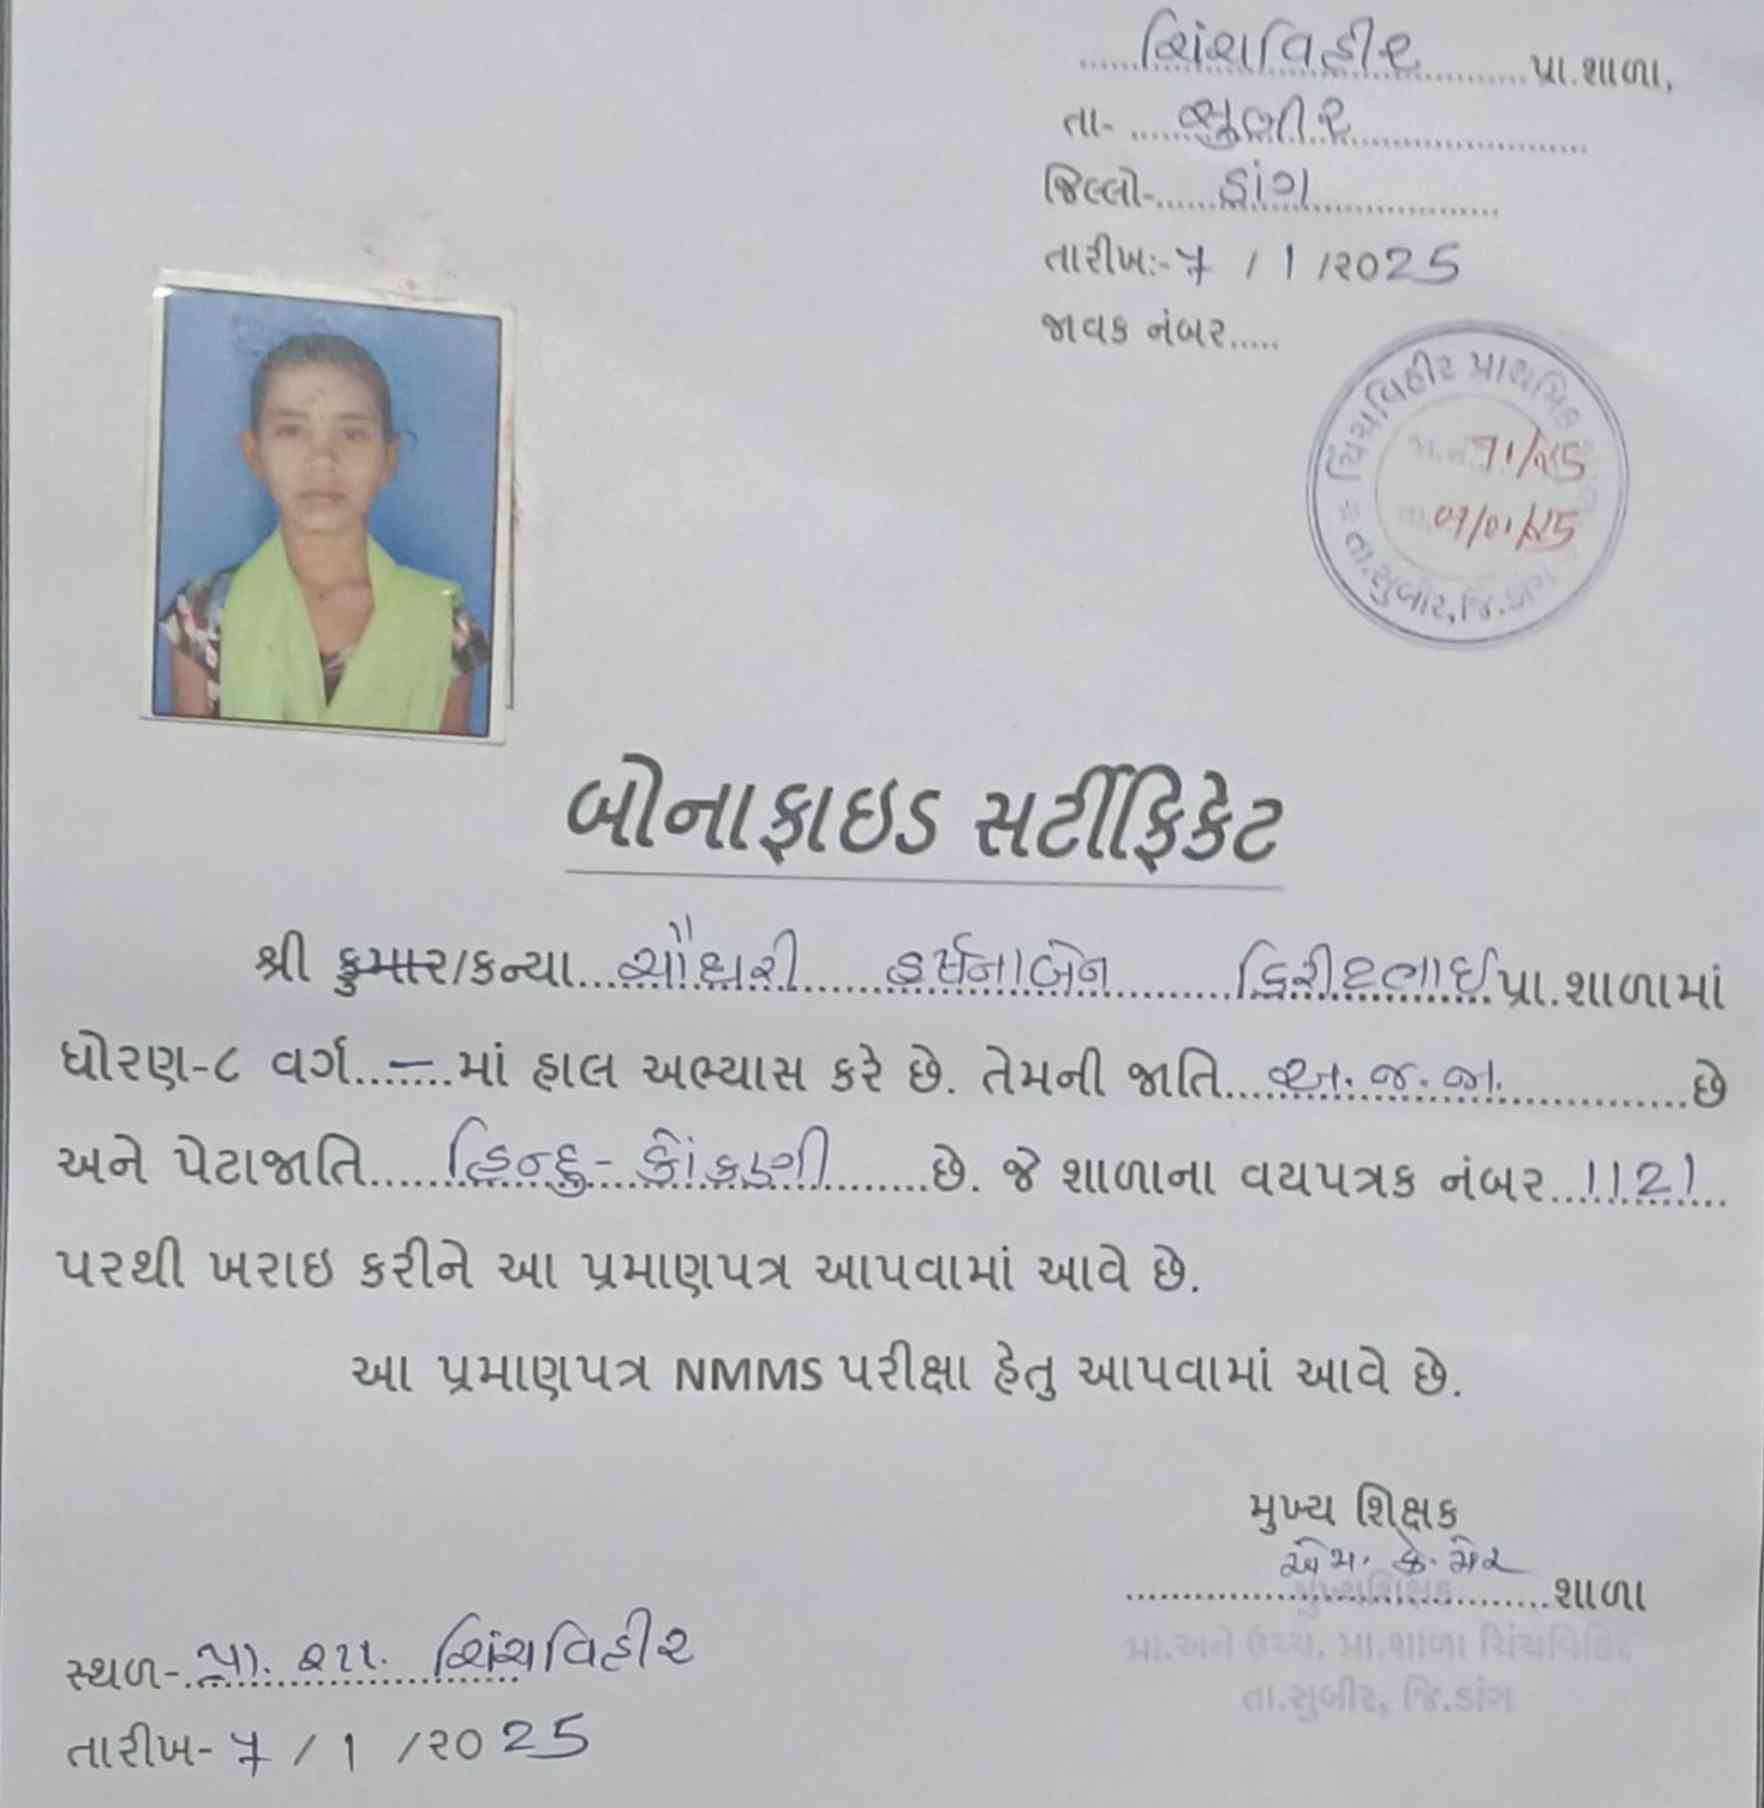 ચિંચવિહીર પ્રા.શાળા,
તા- સુબીર
જિલ્લો- ડાંગ
તારીખઃ- 7 / 1 /૨૦25
જાવક નંબર.....
ચિંચવિહીર પ્રાથમિક
જા.નં. 71/25
તા. 07/01/25
તા.સુબીર, જિ.ડાંગ
બોનાફાઇડ સર્ટીફિકેટ
શ્રી કુમાર/કન્યા...ચૌધરી હર્ષનાબેન કિરીટભાઈ પ્રા.શાળામાં
ધોરણ-૮ વર્ગ...—...માં હાલ અભ્યાસ કરે છે. તેમની જાતિ...અ.જ.જા....છે
અને પેટાજાતિ...હિન્દુ-કોંકણી...છે. જે શાળાના વયપત્રક નંબર...1121...
પરથી ખરાઇ કરીને આ પ્રમાણપત્ર આપવામાં આવે છે.
આ પ્રમાણપત્ર NMMS પરીક્ષા હેતુ આપવામાં આવે છે.
મુખ્ય શિક્ષક
એમ. કે. મેર
...શાળા
મુખ્યશિક્ષક
પ્રા.અને ઉચ્ચ. પ્રા.શાળા ચિંચવિહિર
તા.સુબીર, જિ.ડાંગ
સ્થળ- પ્રા. શા. ચિંચવિહીર
તારીખ- 7 / 1 /૨૦25